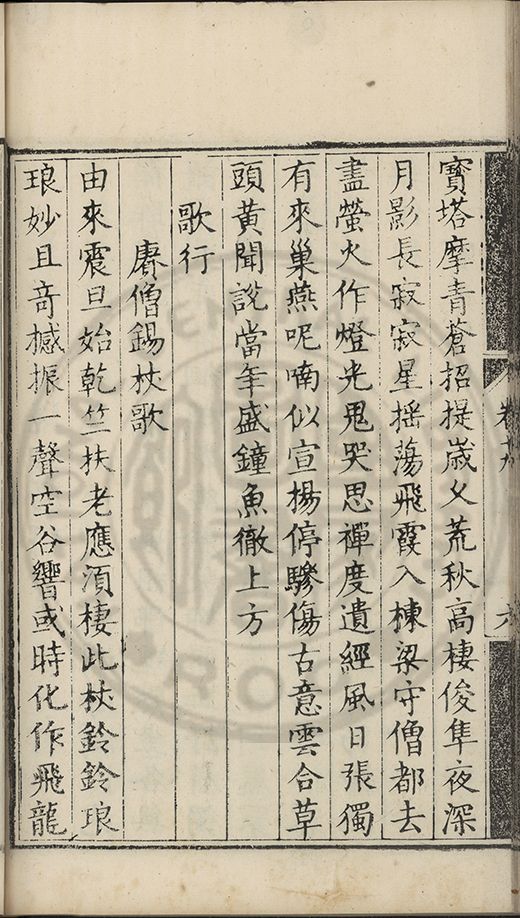 寶塔摩青蒼招提歲乆荒秋高棲俊隼夜深
月影長寂寂星摇蕩飛霞入棟梁守僧都去
盡螢火作燈光鬼哭思禪度遺經風日張獨
有來巢燕呢喃似宣揚停驂傷古意雲合草
頭黄聞說當年盛鐘魚徹上方
歌行
賡僧錫杖歌
由來震旦始乾竺扶老應湏棲此杖鈴鈴琅
琅妙且奇撼振一聲空谷響或時化作飛龍
卷十九
六